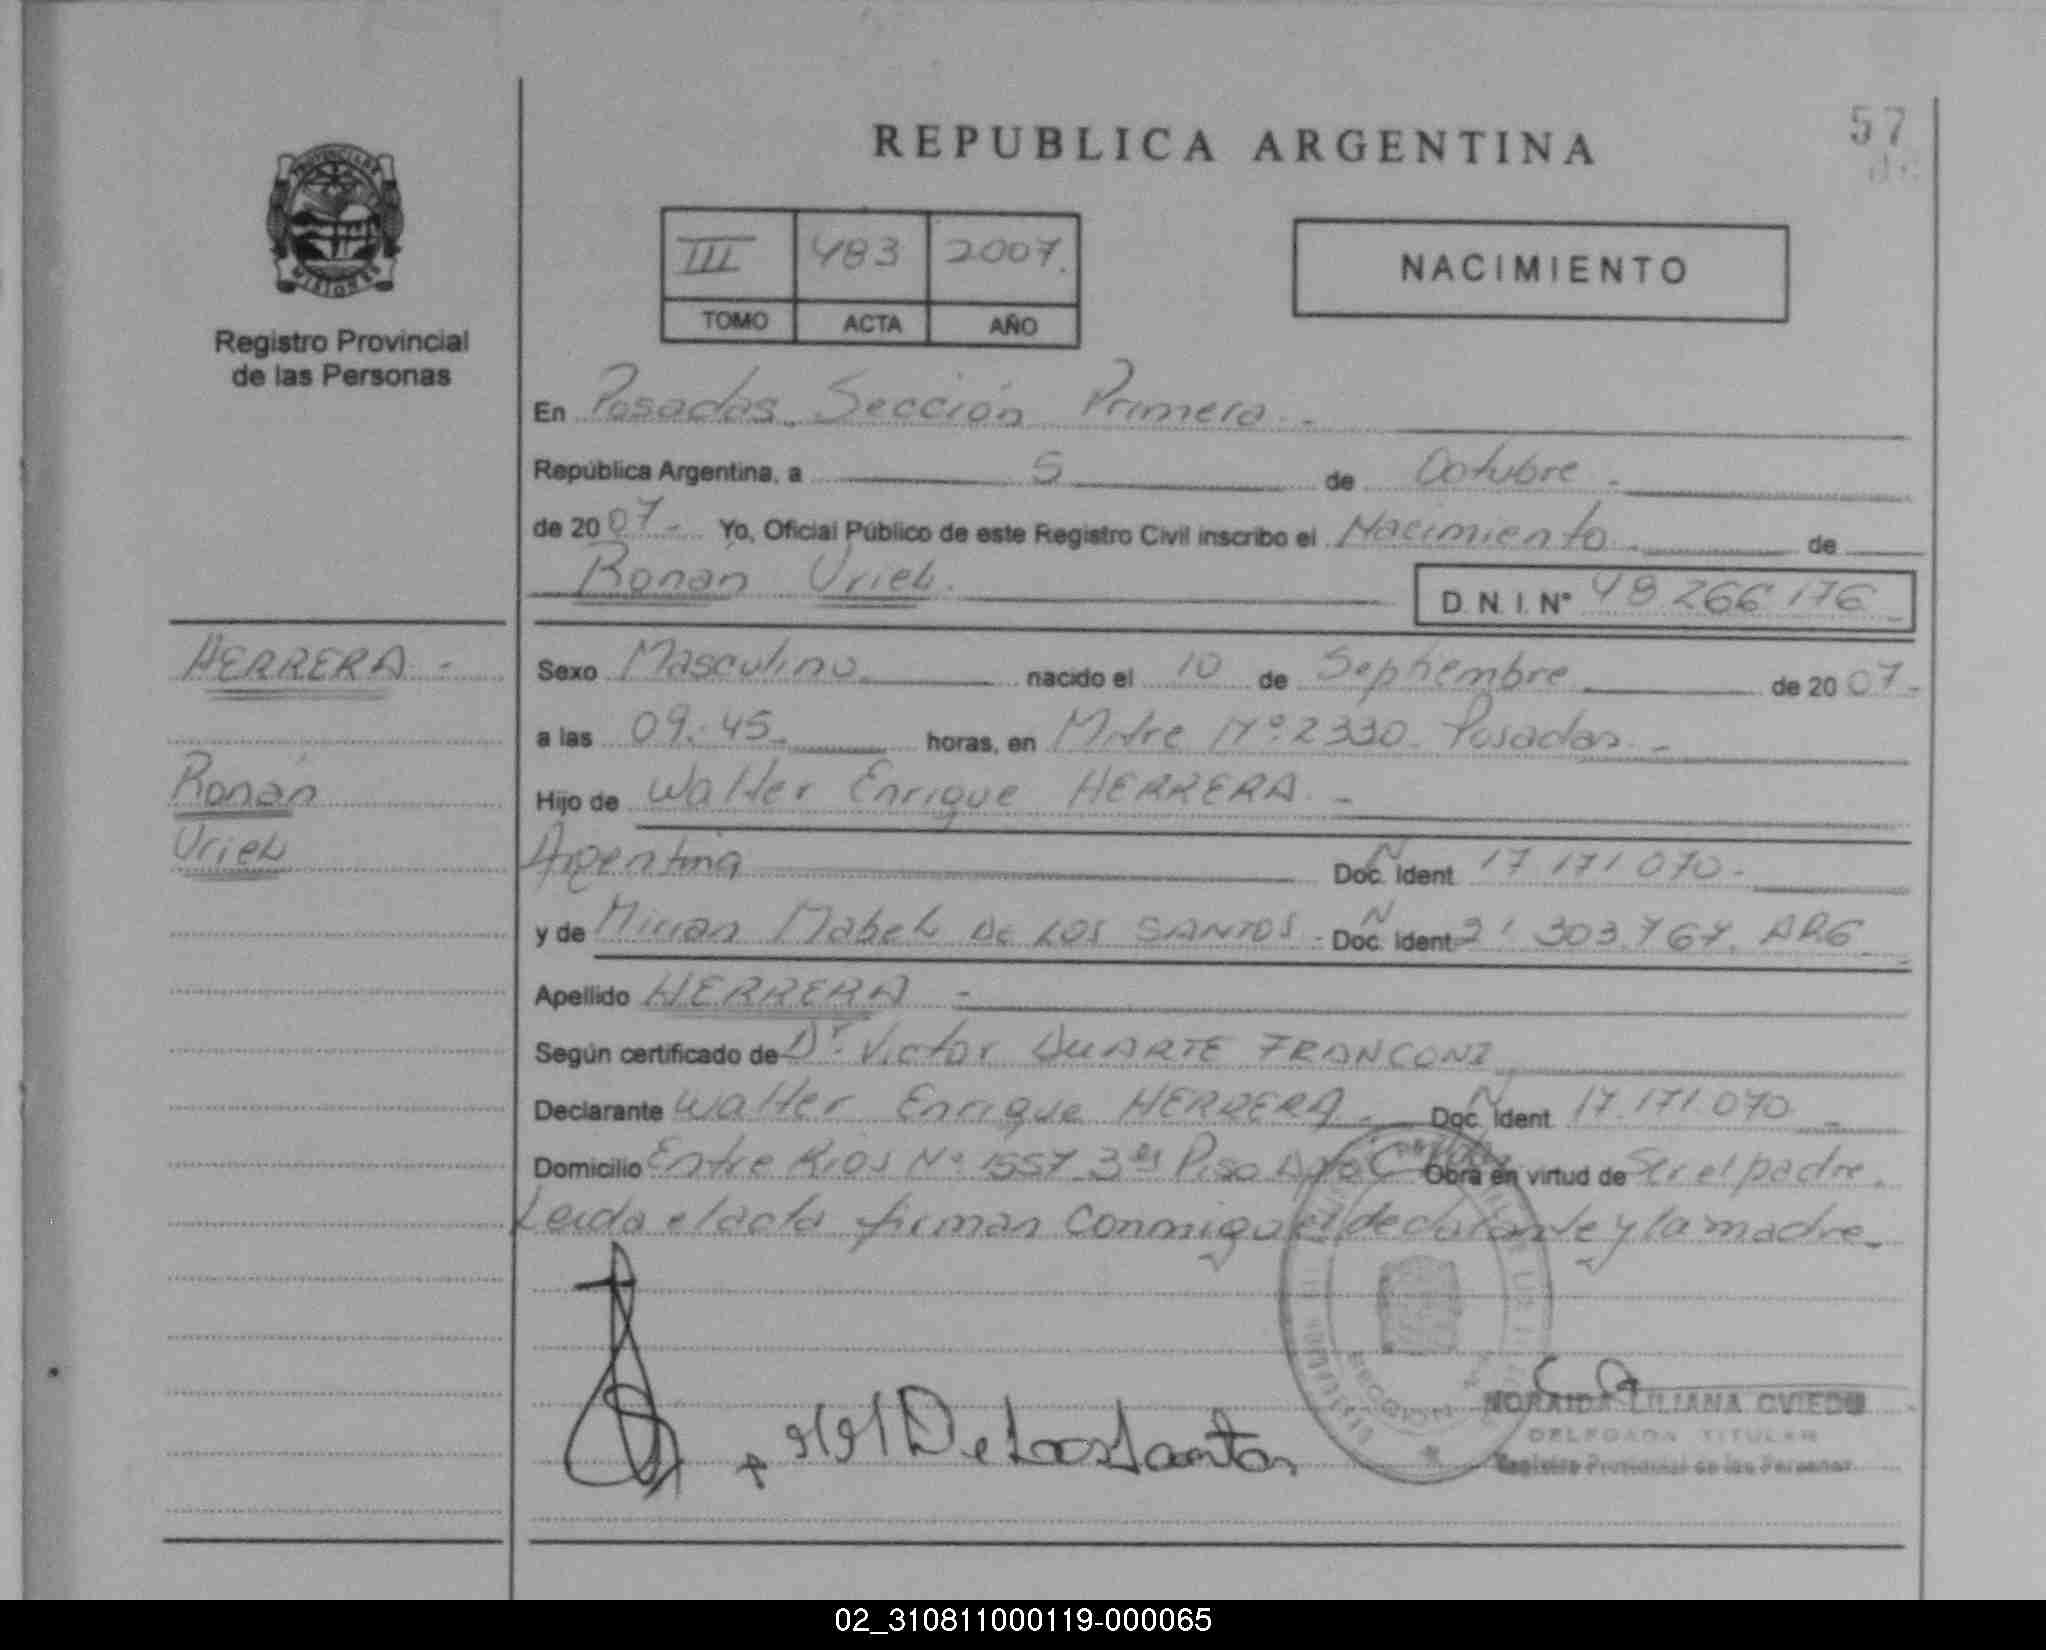 57
REPUBLICA ARGENTINA
PROVINCIA DE
MISIONES
Registro Provincial
de las Personas
III 483 2007.
TOMO ACTA AÑO
NACIMIENTO
En Posadas, Sección Primera.-
República Argentina, a 5 de Octubre.-
de 2007.- Yo, Oficial Público de este Registro Civil inscribo el Nacimiento.- de
Ronan Uriel.
D.N.I. N° 48.266.176
HERRERA.-
Ronan
Uriel
Sexo Masculino nacido el 10 de Septiembre de 2007.-
a las 09:45.- horas, en Mitre Nº 2330. Posadas.-
Hijo de Walter Enrique HERRERA.-
Argentina Doc. N Ident 17.171.070.-
y de Mirian Mabel De LOS SANTOS.- Doc. N Ident 21.303.767. ARG
Apellido HERRERA.-
Según certificado de Dr. Victor DUARTE FRANCONI
Declarante Walter Enrique HERRERA.- Doc. N Ident 17.171.070.-
Domicilio Entre Rios Nº 1557 3er Piso Dpto C Obra en virtud de Ser el padre.
Leida el acta firman conmigo el declarante y la madre.-
M M De Los Santos
SECCION 1ª
NORAIDA LILIANA OVIEDO
DELEGADA TITULAR
Registro Provincial de las Personas
02_310811000119-000065